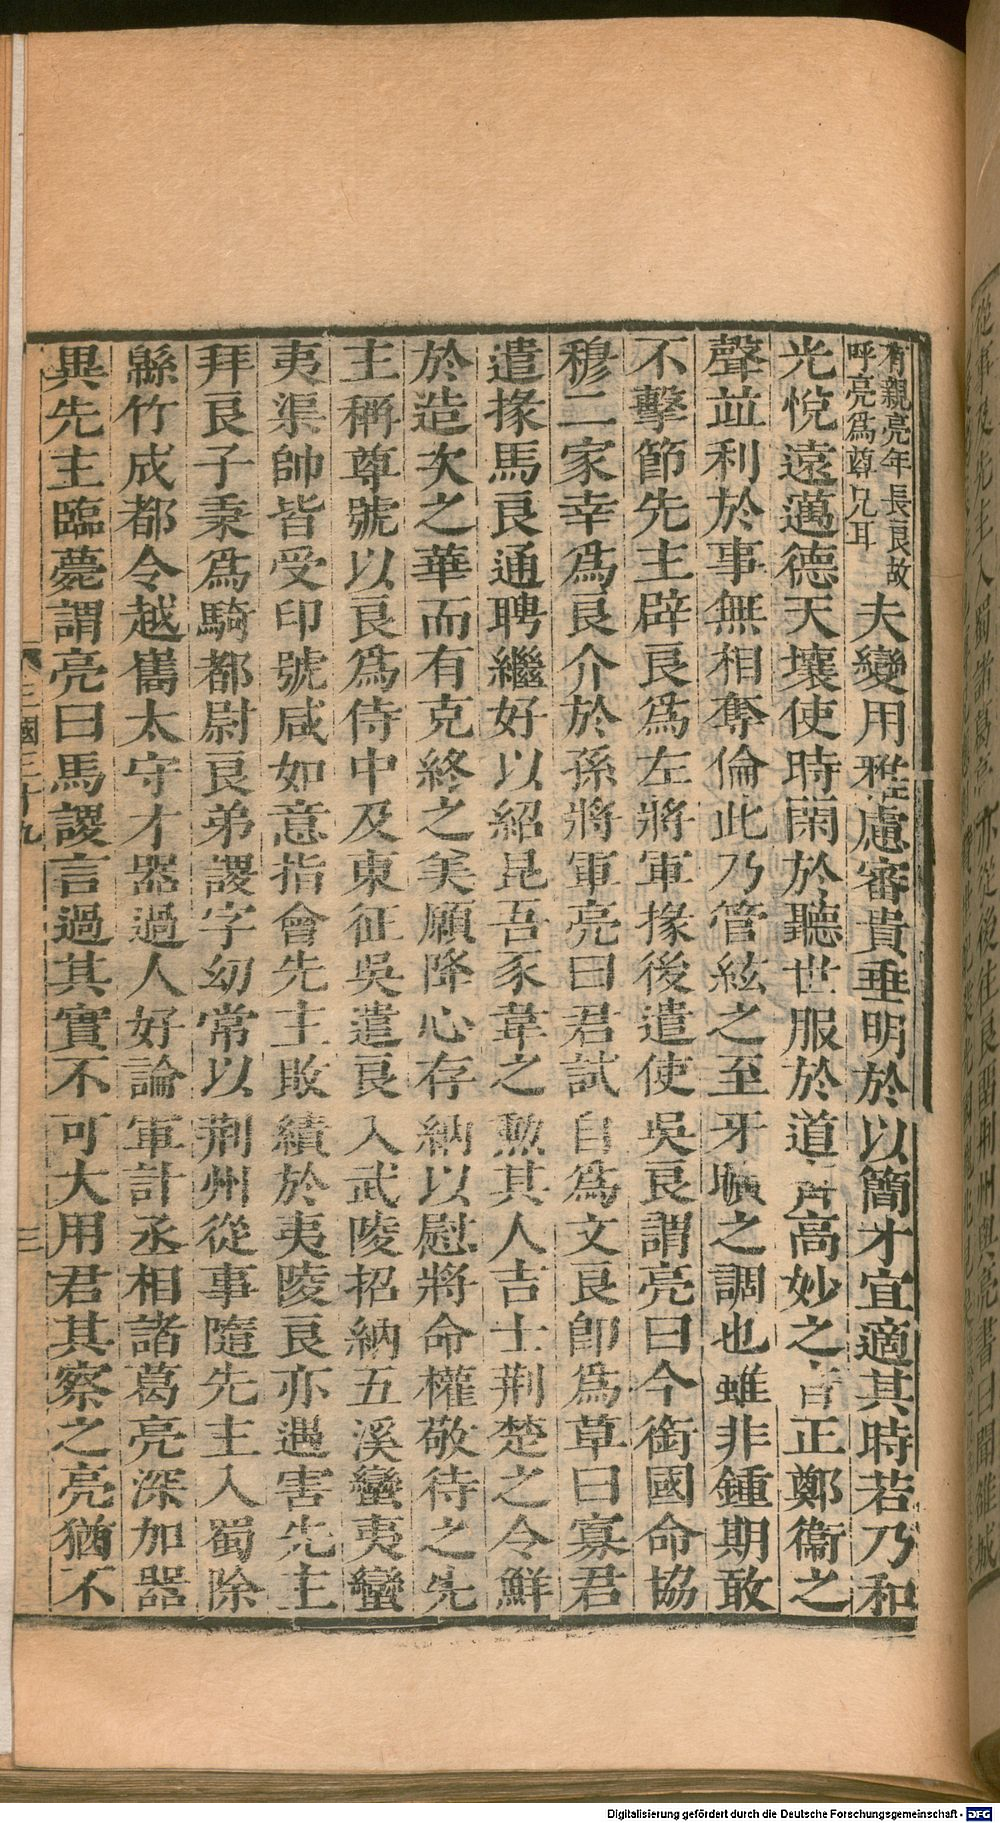 有親亮年長良故
呼亮爲尊兄耳
夫變用雅慮審貴垂明於以簡才宜適其時若乃和
光悅遠邁德天壤使時閑於聽世服於道齊高妙之音正鄭衞之
聲並利於事無相奪倫此乃管絃之至牙曠之調也雖非鍾期敢
不擊節先主辟良爲左將軍掾後遣使吳良謂亮曰今銜國命協
穆二家幸爲良介於孫將軍亮曰君試自爲文良卽爲草曰寡君
遣掾馬良通聘繼好以紹昆吾豕韋之勲其人吉士荆楚之令鮮
於造次之華而有克終之美願降心存納以慰將命權敬待之先
主稱尊號以良爲侍中及東征吳遣良入武陵招納五溪蠻夷蠻
夷渠帥皆受印號咸如意指會先主敗績於夷陵良亦遇害先主
拜良子秉爲騎都尉良弟謖字幼常以荆州從事隨先主入蜀除
緜竹成都令越嶲太守才器過人好論軍計丞相諸葛亮深加器
異先主臨薨謂亮曰馬謖言過其實不可大用君其察之亮猶不
三國三十九
三
Digitalisierung gefördert durch die Deutsche Forschungsgemeinschaft - DFG